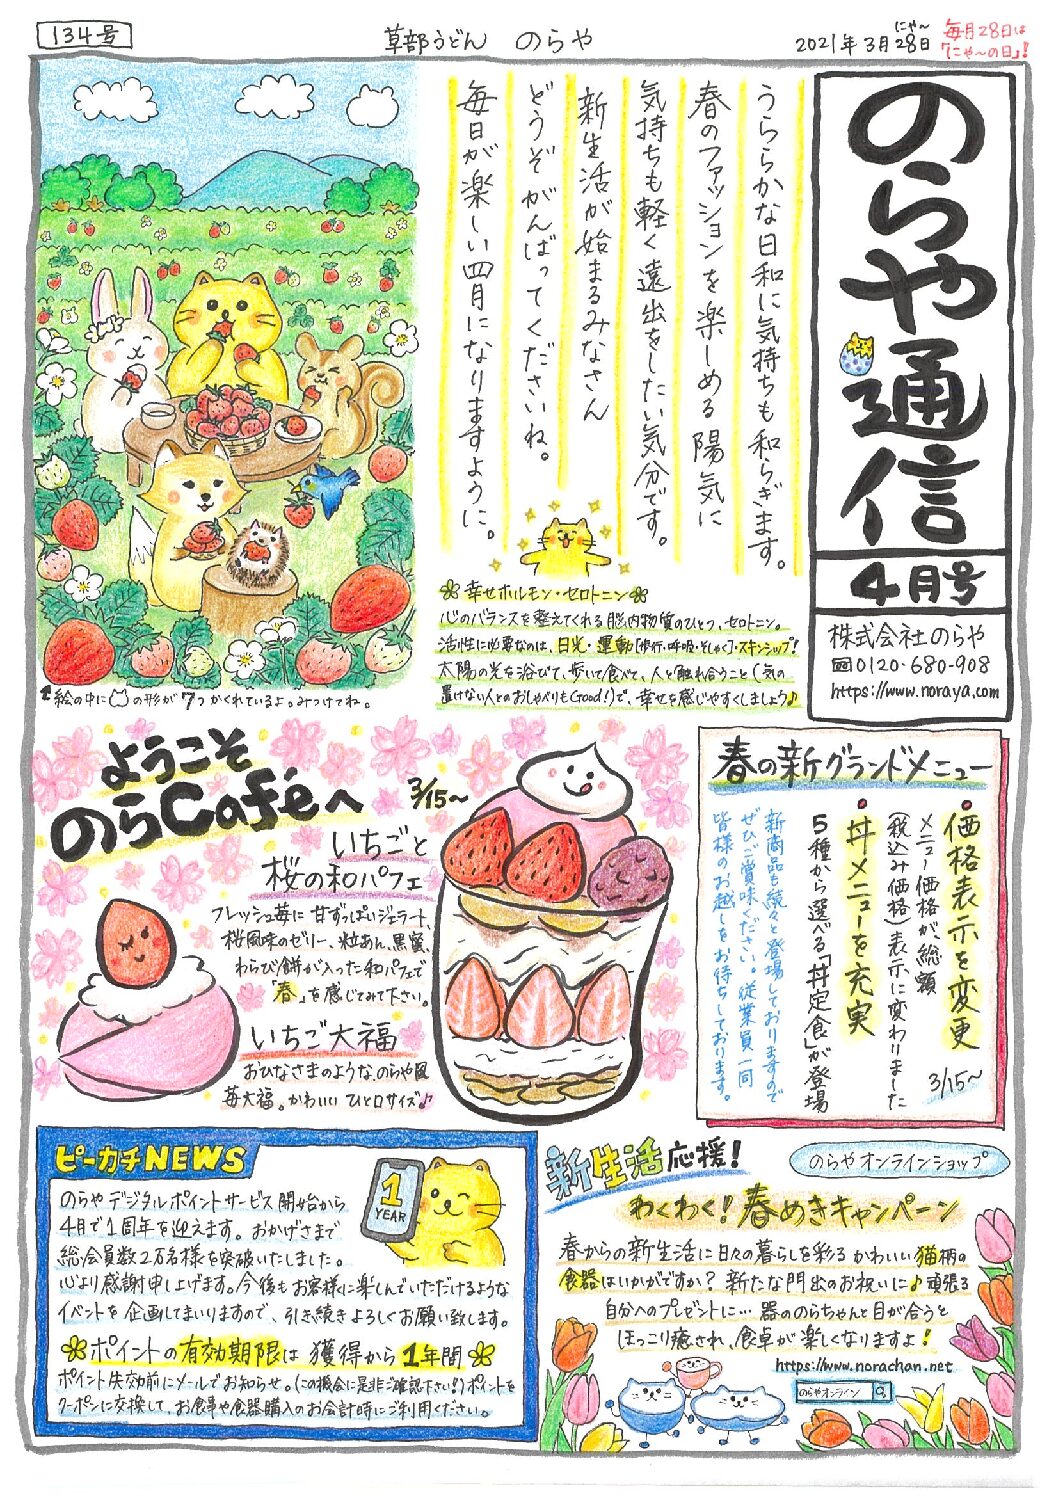 134号
草部うどん のらや
にゃ〜
2021年3月28日
毎月28日は
「にゃ〜の日」!
のらや通信
4月号
株式会社のらや
0120-680-908
https://www.noraya.com
うららかな日和に気持ちも和らぎます。
春のファッションを楽しめる陽気に
気持ちも軽く遠出をしたい気分です。
新生活が始まるみなさん
どうぞがんばってくださいね。
毎日が楽しい四月になりますように。
幸せホルモン・セロトニン
心のバランスを整えてくれる脳内物質のひとつ、セロトニン。
活性に必要なのは、日光・運動[歩行・呼吸・そしゃく]・スキンシップ!
太陽の光を浴びて、歩いて食べて、人と触れ合うこと(気の
置けない人とのおしゃべりもGood!)で、幸せを感じやすくしましょう♪
↑絵の中に の形が7つかくれているよ。みつけてね。
ようこそ
のらCaféへ
3/15〜
いちごと
桜の和パフェ
フレッシュ苺に甘ずっぱいジェラート、
桜風味のゼリー、粒あん、黒蜜、
わらび餅が入った和パフェで
「春」を感じてみて下さい。
いちご大福
おひなさまのような、のらや風
苺大福。かわいいひと口サイズ♪
春の新グランドメニュー
価格表示を変更
3/15〜
メニュー価格が総額
(税込み価格)表示に変わりました
丼メニューを充実
5種から選べる「丼定食」が登場
新商品も続々と登場しておりますので
ぜひご賞味ください。従業員一同
皆様のお越しをお待ちしております。
ピーカチNEWS
1
YEAR
のらやデジタルポイントサービス開始から
4月で1周年を迎えます。おかげさまで
総会員数2万名様を突破いたしました。
心より感謝申し上げます。今後もお客様に楽しんでいただけるような
イベントを企画してまいりますので、引き続きよろしくお願い致します。
ポイントの有効期限は獲得から1年間
ポイント失効前にメールでお知らせ。(この機会に是非ご確認下さい!)ポイントを
クーポンに交換して、お食事や食器購入のお会計時にご利用ください。
新生活応援!
のらやオンラインショップ
わくわく!春めきキャンペーン
春からの新生活に日々の暮らしを彩るかわいい猫柄の
食器はいかがですか?新たな門出のお祝いに♪頑張る
自分へのプレゼントに…器ののらちゃんと目が合うと
ほっこり癒され、食卓が楽しくなりますよ!
https://www.norachan.net
のらやオンライン